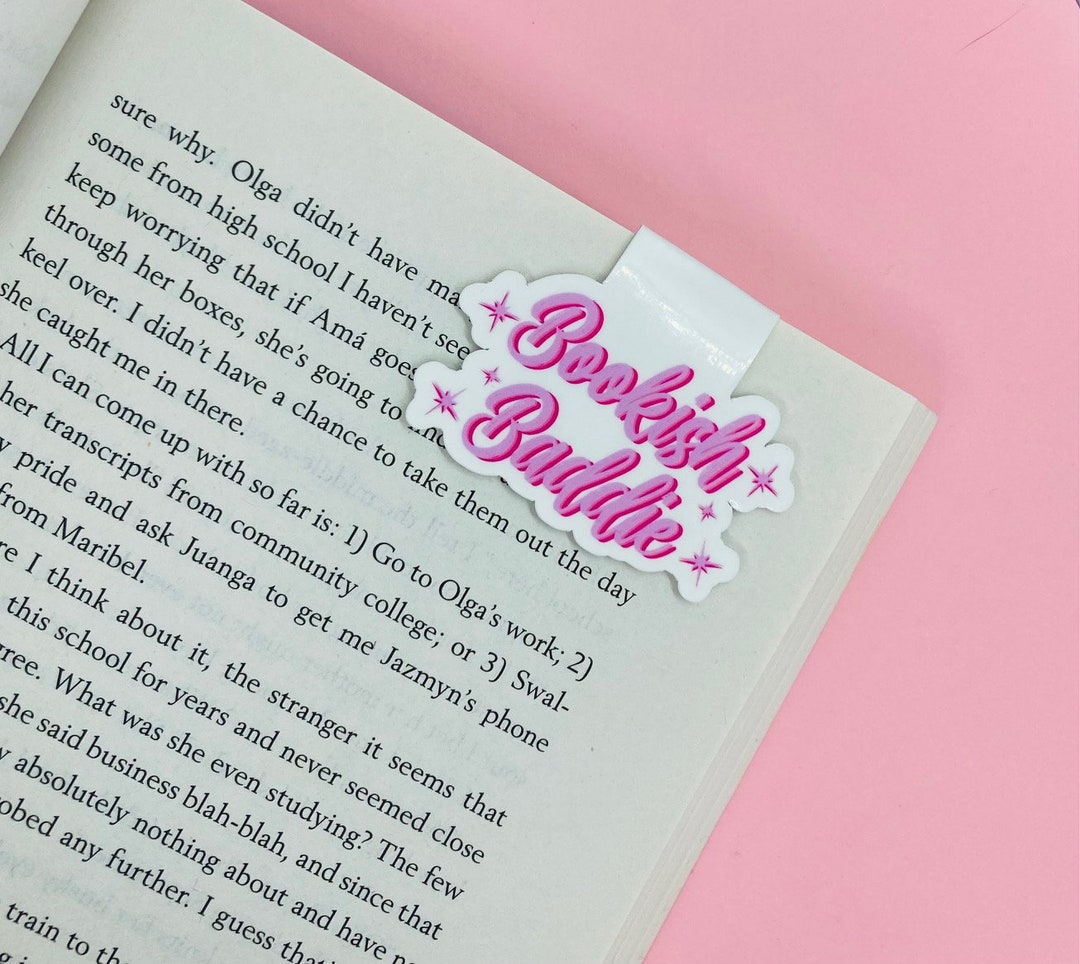 sure why. Olga didn't have
some from high school I haven't
keep worrying that if Amá goes
through her boxes, she's going to
keel over. I didn't have a chance to take them out the day
she caught me in there.
All I can come up with so far is: 1) Go to Olga's work; 2)
her transcripts from community college; or 3) Swal-
pride and ask Juanga to get me Jazmyn's phone
from Maribel.
I think about it, the stranger it seems that
this school for years and never seemed close
What was she even studying? The few
she said business blah-blah, and since that
absolutely nothing about and have
any further. I guess
train to the
Bookish
Baddie